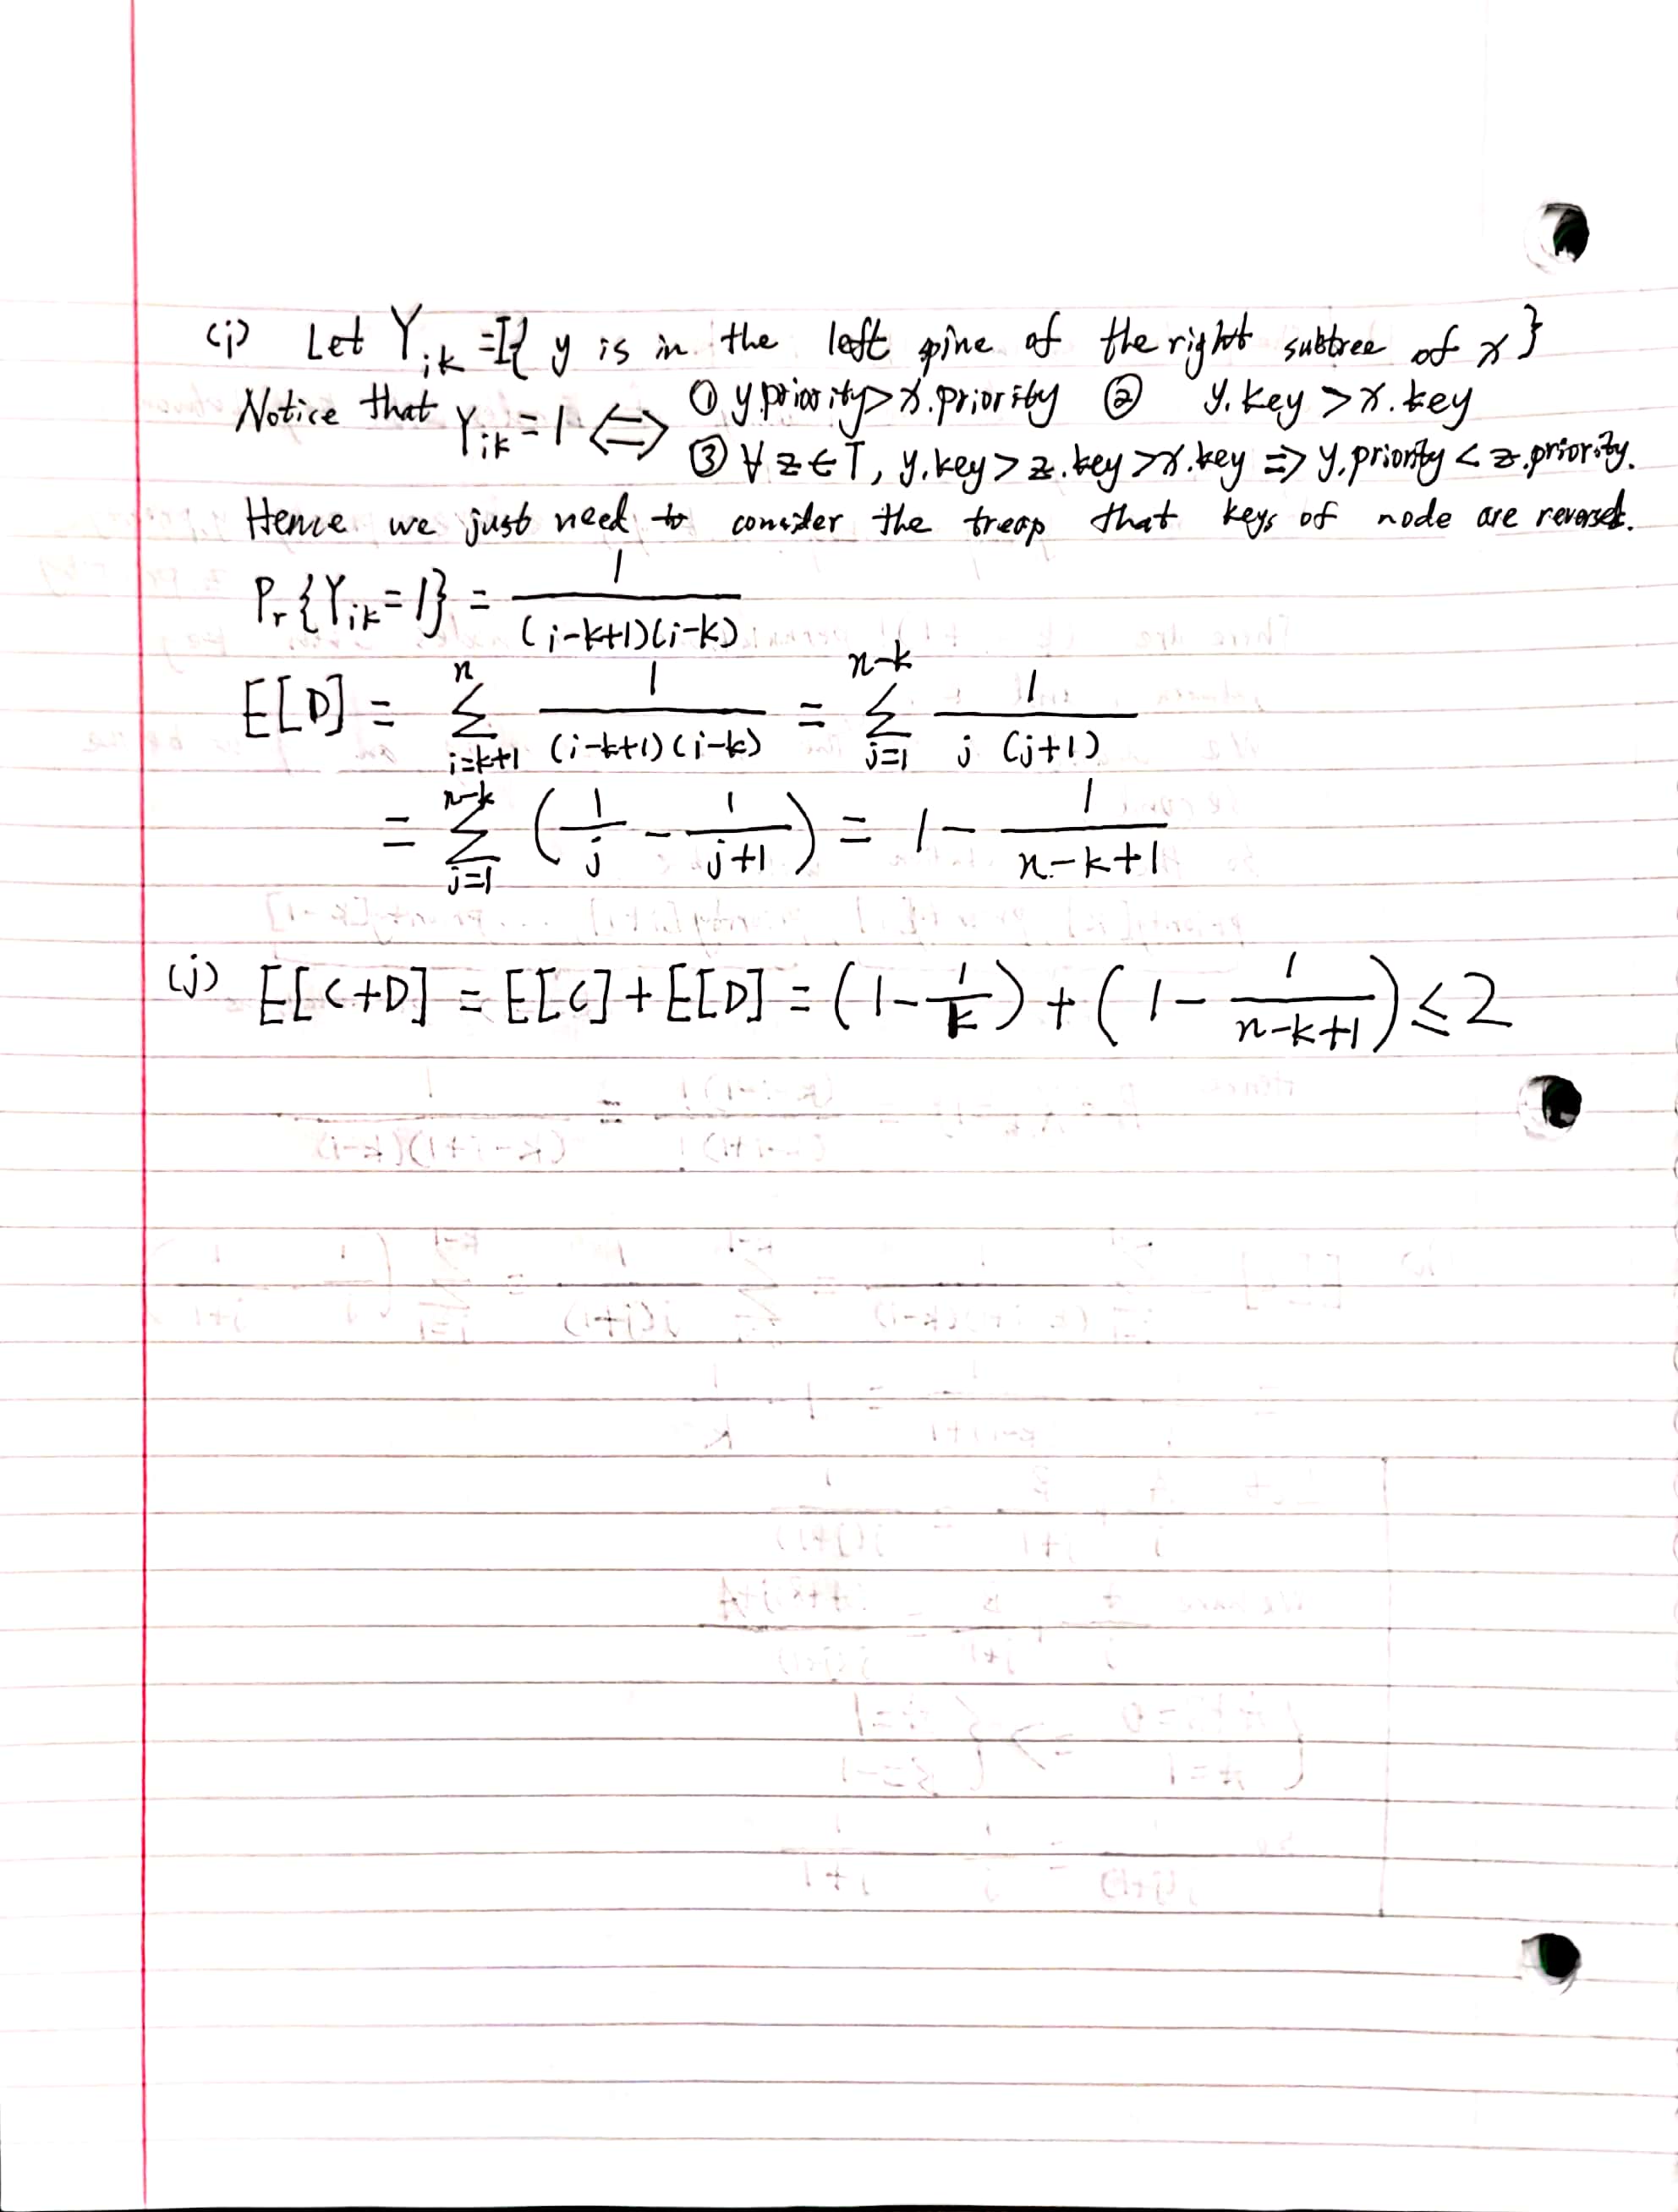 (i) Let Y_{ik} = I{ y is in the left pine of the right subtree of x }
Notice that Y_{ik} = 1 ⟺ ① y.priority > x.priority ② y.key > x.key
③ ∀ z ∈ T, y.key > z.key > x.key ⇒ y.priority < z.priority.
Hence we just need to consider the treap that keys of node are reversed.
Pr{Y_{ik} = 1} = 1 / ((i-k+1)(i-k))
E[D] = ∑_{i=k+1}^{n} 1 / ((i-k+1)(i-k)) = ∑_{j=1}^{n-k} 1 / (j (j+1))
= ∑_{j=1}^{n-k} (1/j - 1/(j+1)) = 1 - 1/(n-k+1)
(j) E[C+D] = E[C] + E[D] = (1 - 1/k) + (1 - 1/(n-k+1)) ≤ 2